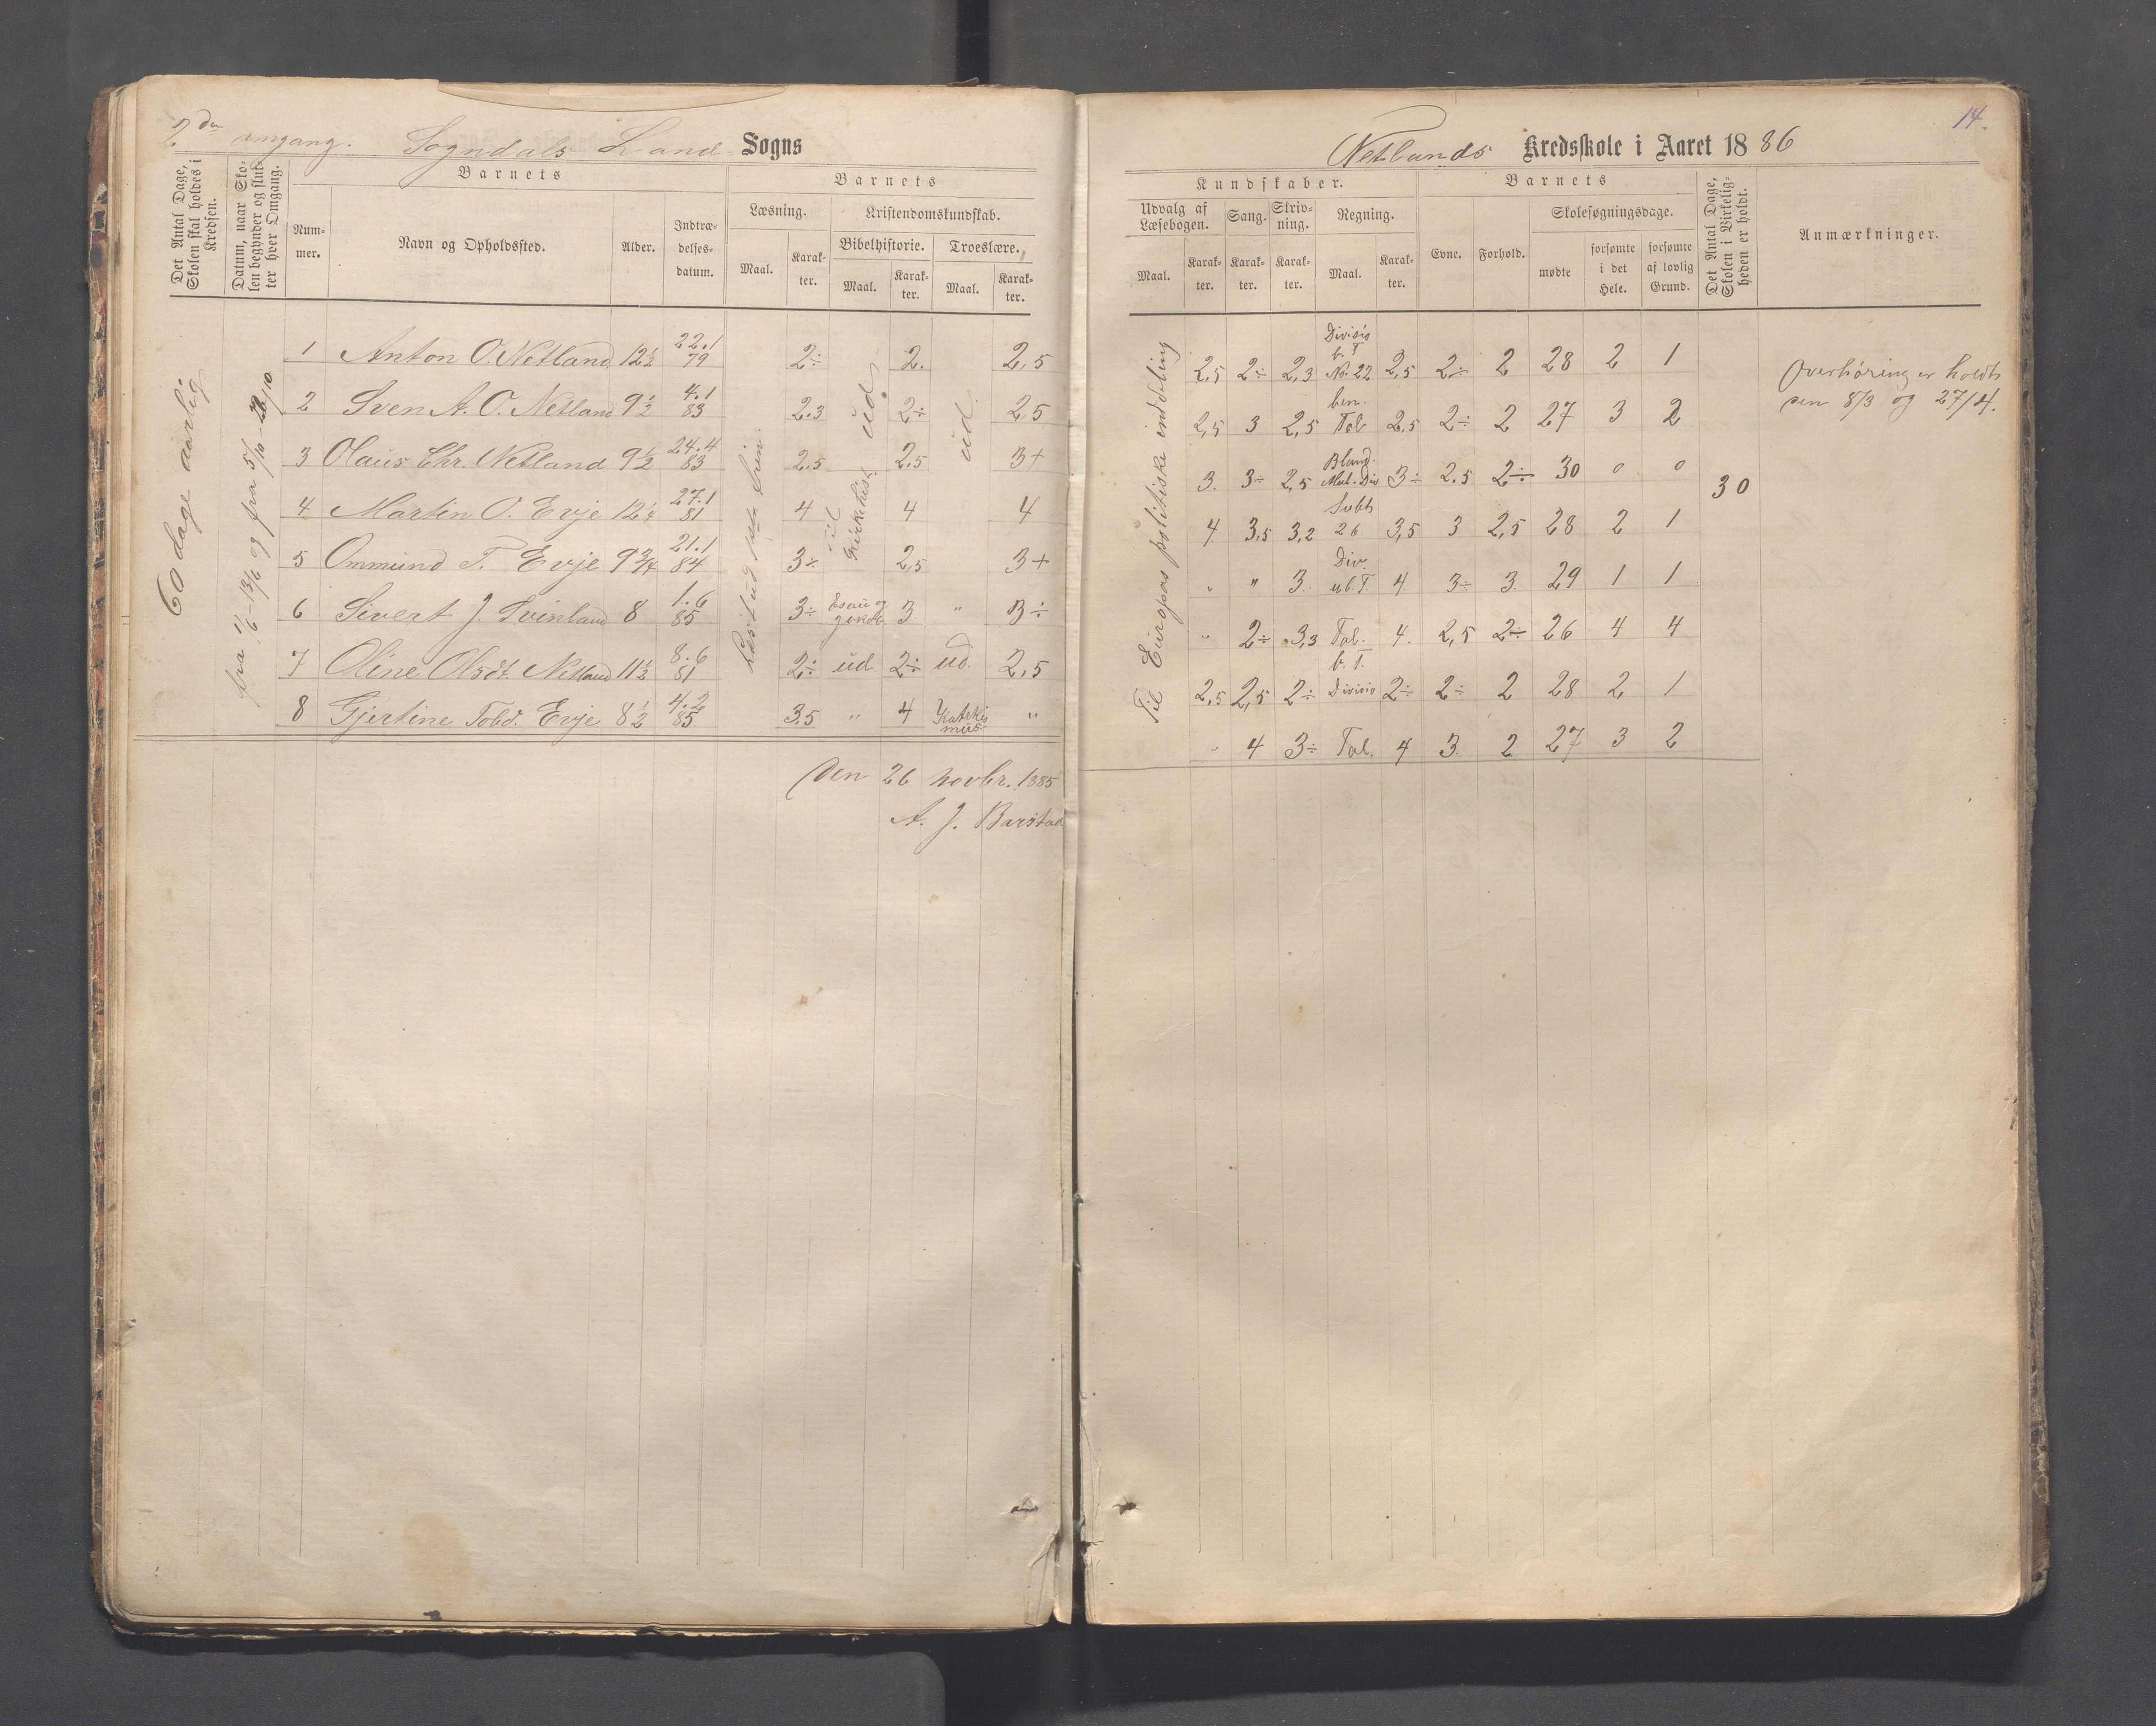 2den omgang. Sogndals Land Sogns
Det Antal Dage, Skolen skal holdes i Kredsen.
Datum, naar Skolen begynder og slutter hver Omgang.
Barnets
Nummer.
Navn og Opholdssted.
Alder.
Indtrædelsesdatum.
Barnets
Læsning.
Kristendomskundskab.
Bibelhistorie.
Troeslære.
Maal.
Karakter.
Maal.
Karakter.
Maal.
Karakter.
60 dage aarlig
ud
ud.
Til
1 Anton O. Netland 12½ 22.1 79 2÷ 2. 2,5
2 Sven A. O. Netland 9½ 4.1 83 2.3 2÷ 2.5
3 Olaus Chr. Netland 9½ 24.4 83 2.5 2.5 3+
4 Martin O. Evje 12¼ 27.1 81 4 4 4
5 Ommund T. Evje 9¾ 21.1 84 3÷ 2,5 3+
6 Sivert J. Svinland 8 1.6 85 3÷ Esau og Jakob 3 " 3÷
7 Oline Olsdt. Netland 11½ 8.6 81 2÷ ud. 2÷ ud. 2,5
8 Gjertine Tobd. Evje 8½ 4.2 85 3.5 " 4 Katekismus "
Den 26 novbr. 1885
A. J. Barstad
14.
Netlands Kredsskole i Aaret 1886
Kundskaber.
Udvalg af Læsebogen.
Sang.
Skrivning.
Regning.
Maal.
Karakter.
Karakter.
Karakter.
Maal.
Karakter.
Barnets
Evne.
Forhold.
Skolesøgningsdage.
mødte
forsømte i det Hele.
forsømte af lovlig Grund.
Det Antal Dage, Skolen i Virkeligheden er holdt.
Anmærkninger.
Til Europas politiske inddeling
2,5 2÷ 2,3 Divisio b. T No. 22 2,5 2÷ 2 28 2 1
2,5 3 2,5 ben. Tal 2,5 2÷ 2 27 3 2
3. 3÷ 2,5 Bland. Mul. Div 3÷ 2.5 2÷ 30 0 0
30
4 3,5 3,2 Subt 26 3,5 3 2,5 28 2 1
" " 3. Div. ub. T. 4. 3÷ 3. 29 1 1
" 2÷ 3,3 Tal. 4. 2,5 2÷ 26 4 4
2,5 2,5 2÷ b. T. Divisio 2÷ 2÷ 2 28 2 1
" 4 3÷ Tal. 4 3. 2 27 3 2
Overhöring er holdt
den 8/3 og 27/4.